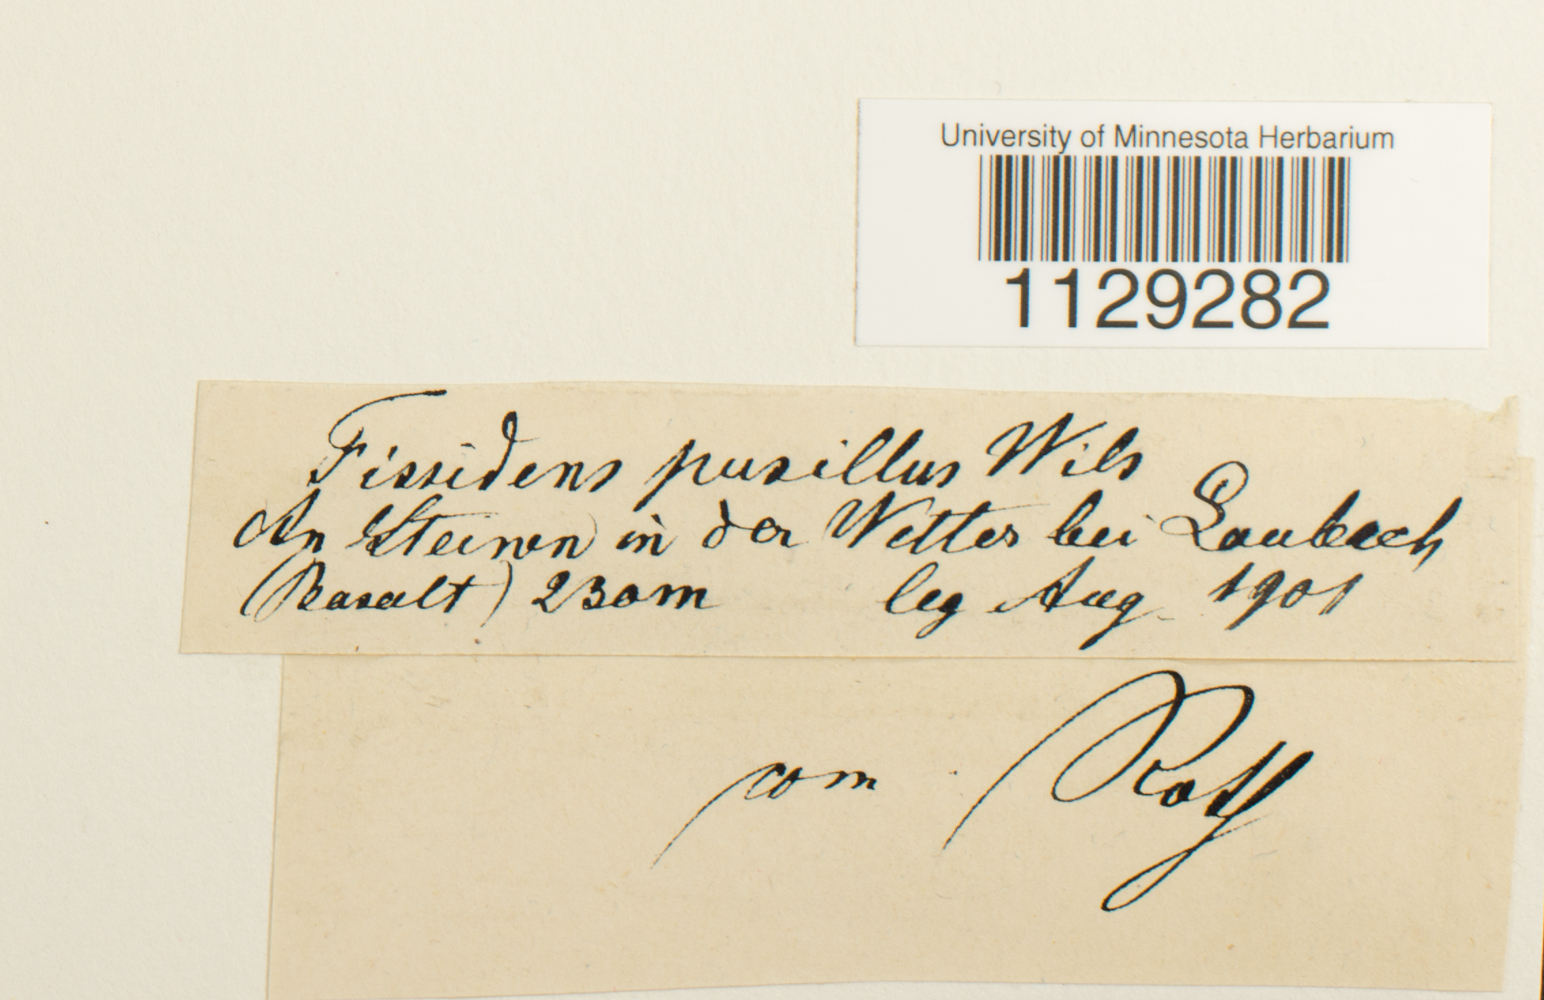 University of Minnesota Herbarium
1129282
Fissidens pusillus Wils
An Steinen in der Wetter bei Laubach
(Basalt) 230m leg Aug. 1901
com Roth